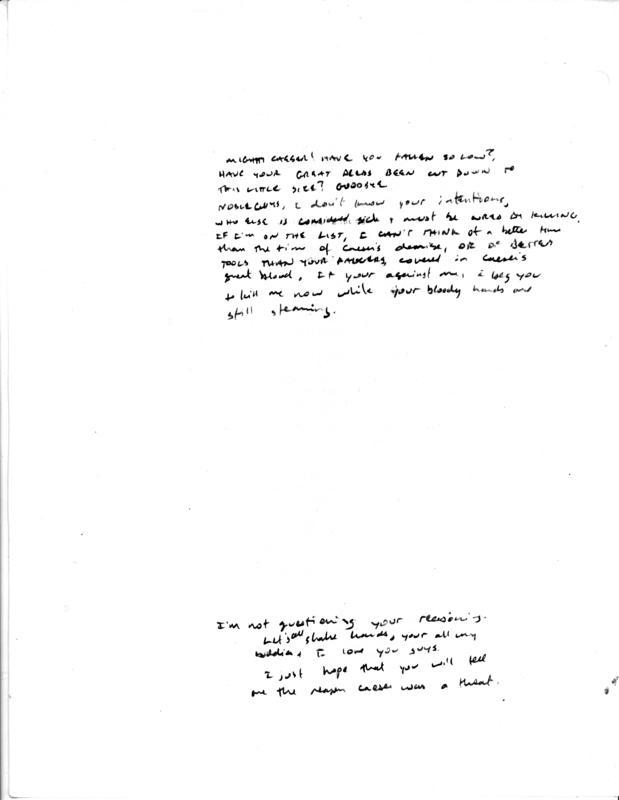 MIGHTY CAESER! HAVE YOU FALLEN SO LOW?,
HAVE YOUR GREAT DEEDS BEEN CUT DOWN TO
THIS LITTLE SIZE? GOODBYE
NOBLE GUYS, I don't know your intentions,
WHO ELSE IS CONSIDERED sick & MUST BE CURED BY KILLING.
IF I'M ON THE LIST, I CAN'T THINK of a better time
than the time of Caeser's demise, OR OF BETTER
TOOLS THAN YOUR covered in Caeser's
great blood, If your against me, i beg you
to kill me now while your bloody hands are
still steaming.
I'm not questioning your reasoning.
Let's all shake hands, your all my
buddies & I love you guys.
I just hope that you will tell
me the reason caeser was a threat.